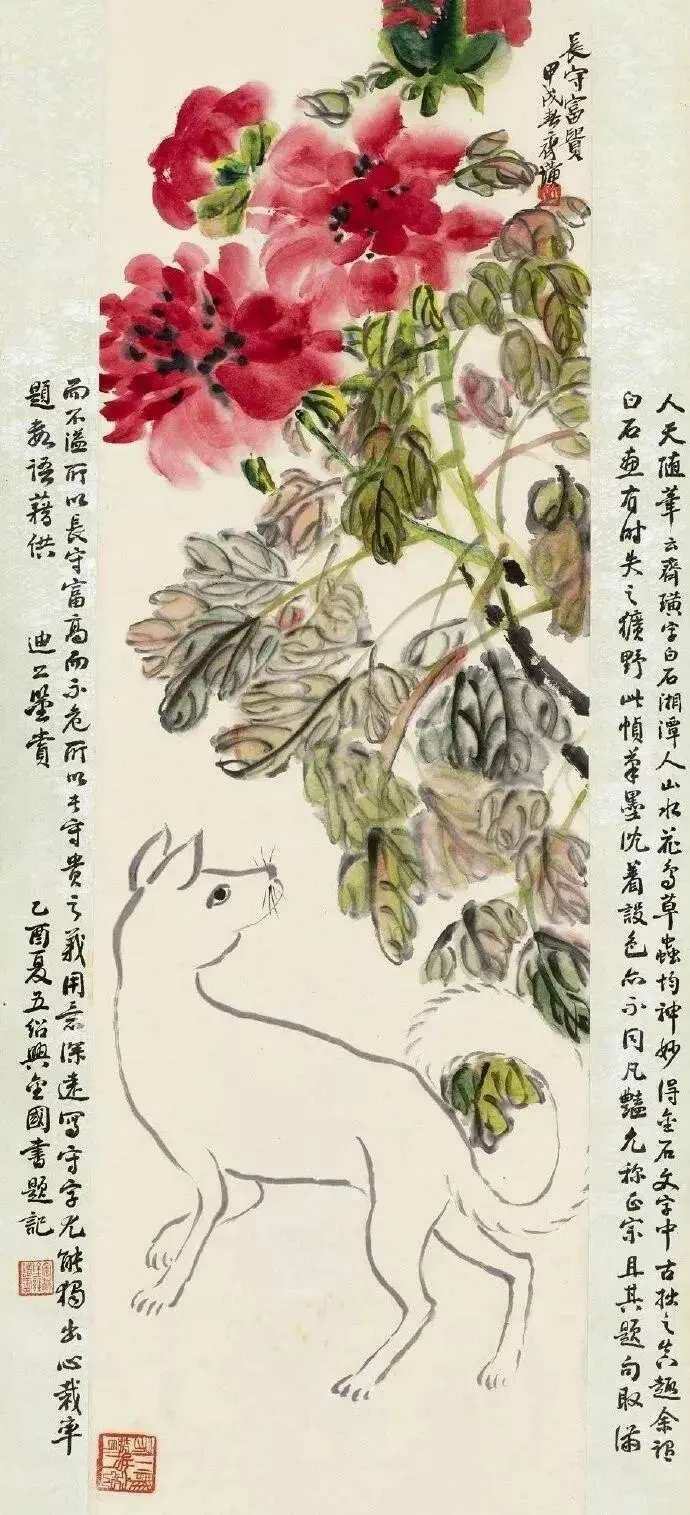 長守富貴
甲戌春齊璜
人天隨筆云齊璜字白石湘潭人山水花鳥草蟲均神妙得金石文字中古拙之真趣余
白石畫有時失之獷野此幀筆墨沈着設色亦不同凡豔允称正宗且其題句取滿
而不溢所以長守富高而不危所以長守貴之義用意深遠寫守字尤能獨出心裁率
題数語藉供 迪公鑒賞 乙酉夏五紹興金國書題記